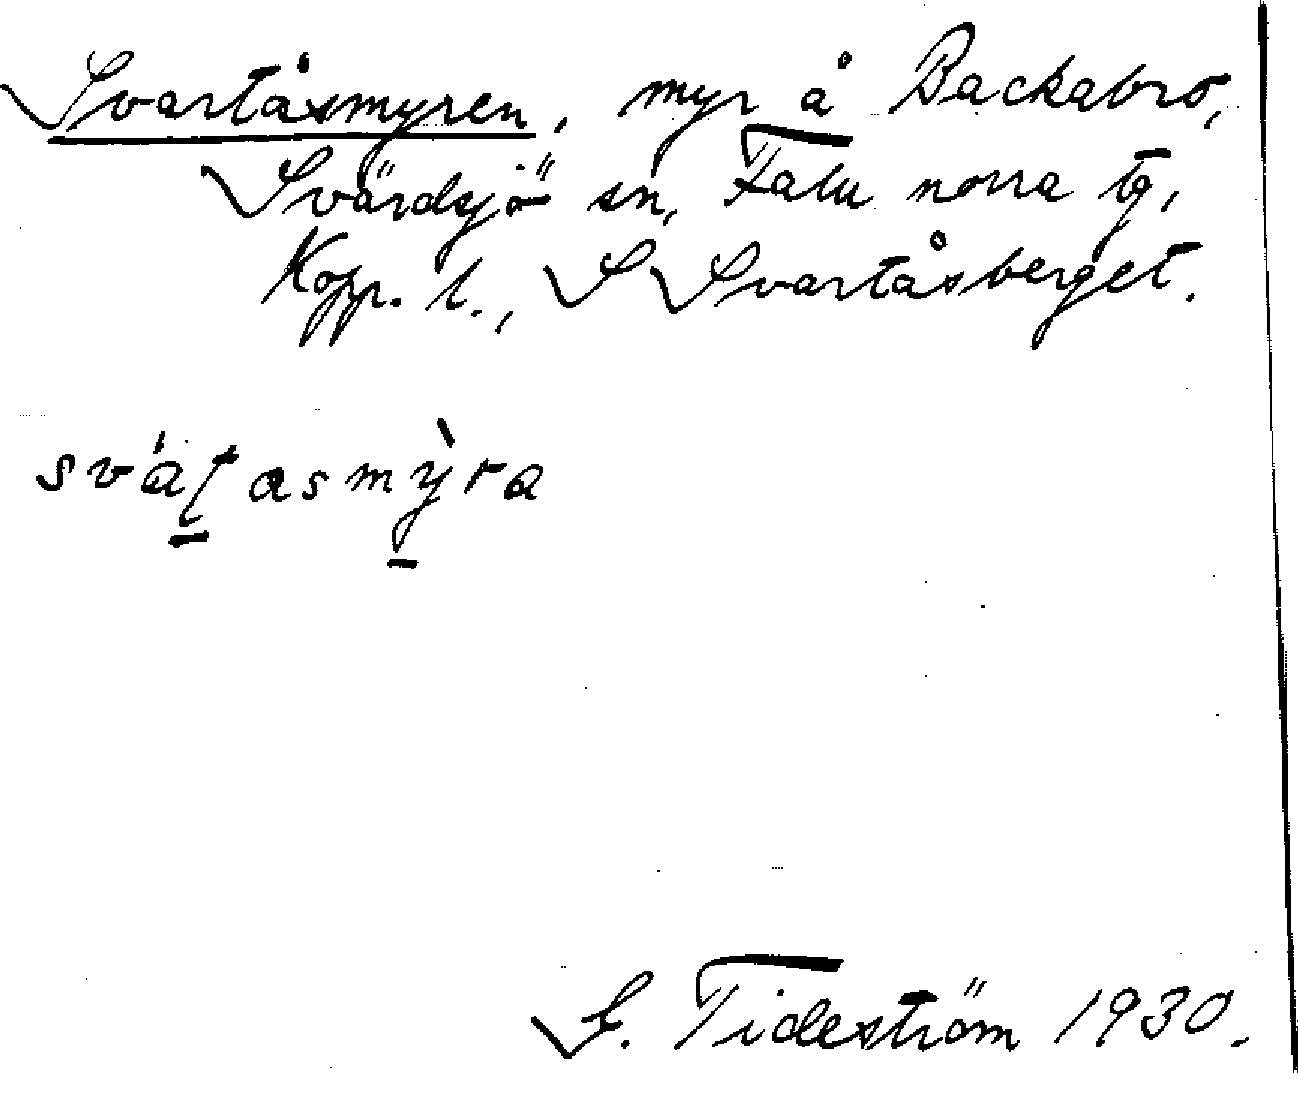 Svartåsmyren, myr å Backabro,
Svärdsjö sn, Falu norra tg,
Kopp. l., S Svartåsberget.
asmỳ̠ra
S. Tideström 1930.